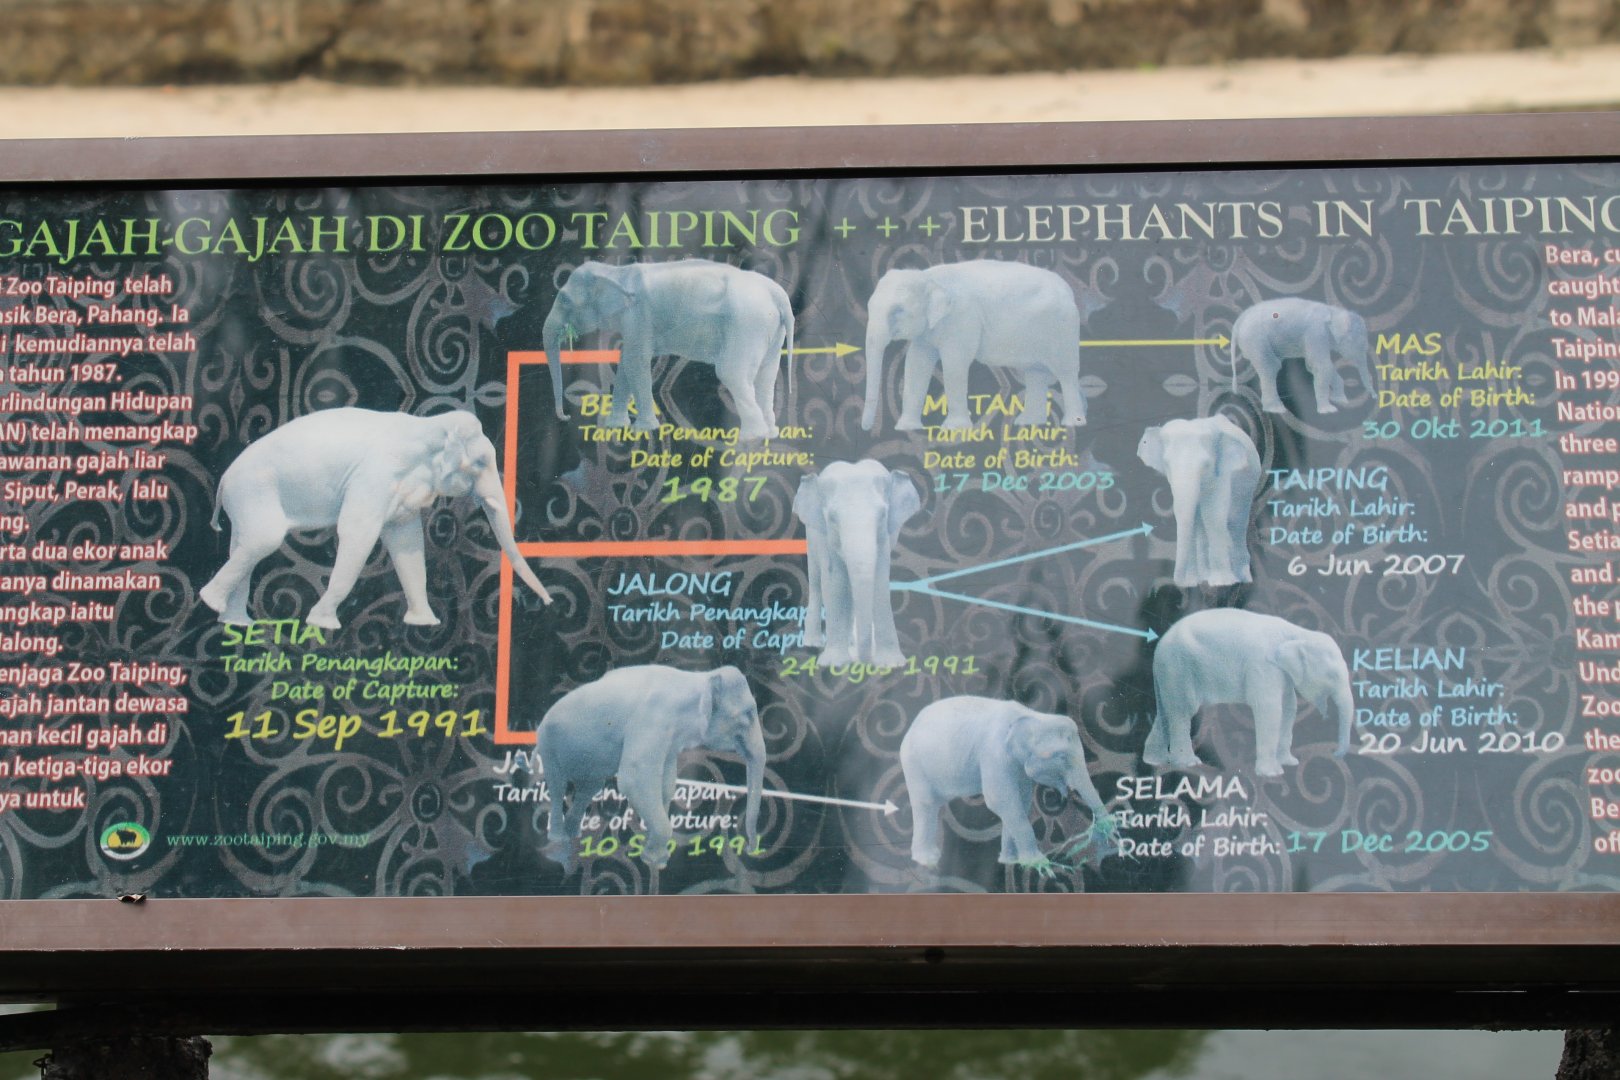 GAJAH-GAJAH DI ZOO TAIPING + + + ELEPHANTS IN TAIPING
Zoo Taiping telah
Bera, Pahang. Ia
kemudiannya telah
tahun 1987.
Hidupan
telah menangkap
gajah liar
Siput, Perak, lalu
dua ekor anak
dinamakan
iaitu
Zoo Taiping,
jantan dewasa
kecil gajah di
ketiga-tiga ekor
untuk
www.zootaiping.gov.my
SETIA
Tarikh Penangkapan:
Date of Capture:
11 Sep 1991
BERA
Tarikh Penangkapan:
Date of Capture:
1987
MATANG
Tarikh Lahir:
Date of Birth:
17 Dec 2003
MAS
Tarikh Lahir:
Date of Birth:
30 Okt 2011
JALONG
Tarikh Penangkapan
Date of Capt
24 Ogos 1991
TAIPING
Tarikh Lahir:
Date of Birth:
6 Jun 2007
KELIAN
Tarikh Lahir:
Date of Birth:
20 Jun 2010
Tarikh Penangkapan:
Date of Capture:
10 Sep 1991
SELAMA
Tarikh Lahir:
Date of Birth: 17 Dec 2005
Bera,
caught
to
In
three
and
Setia
and
the
the